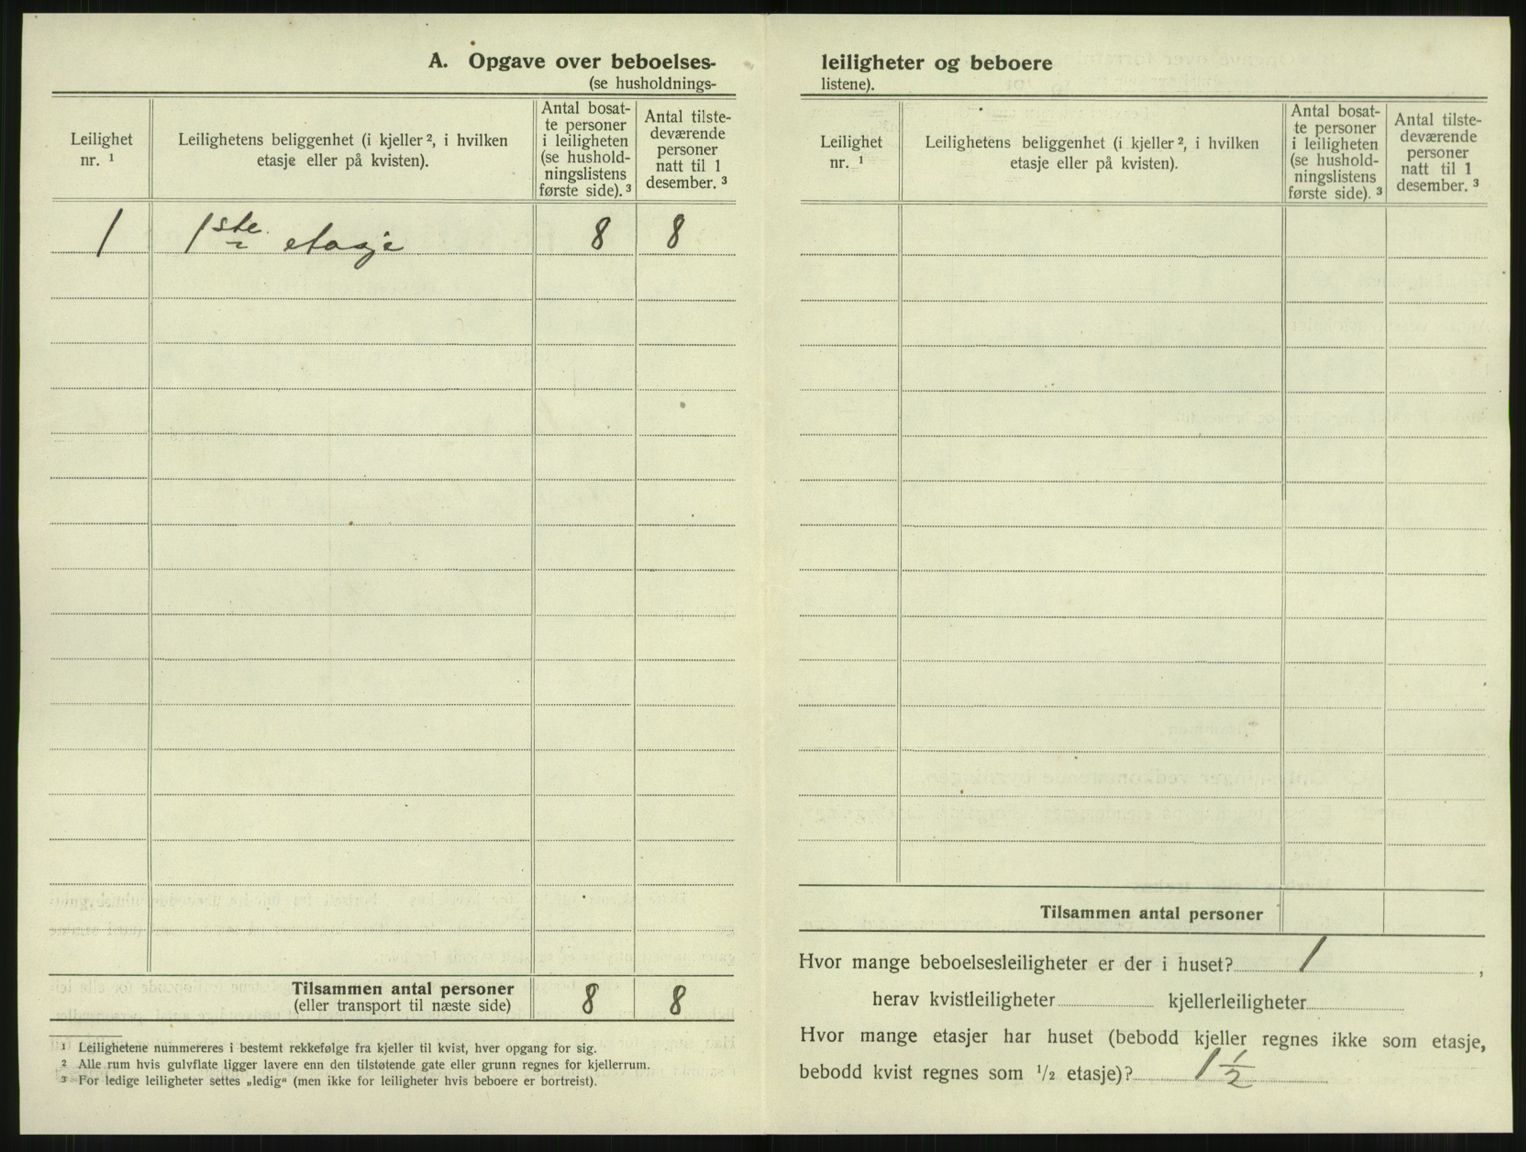 A. Opgave over beboelses-
(se husholdnings-
Leilighet nr. ¹
Leilighetens beliggenhet (i kjeller ², i hvilken etasje eller på kvisten).
Antal bosat-
te personer
i leiligheten
(se hushold-
ningslistens
første side). ³
Antal tilste-
deværende
personer
natt til 1
desember. ³
1 1ste etasje 8 8
Tilsammen antal personer 8 8
(eller transport til næste side)
¹ Leilighetene nummereres i bestemt rekkefølge fra kjeller til kvist, hver opgang for sig.
² Alle rum hvis gulvflate ligger lavere enn den tilstøtende gate eller grunn regnes for kjellerrum.
³ For ledige leiligheter settes „ledig“ (men ikke for leiligheter hvis beboere er bortreist).
leiligheter og beboere
listene).
Leilighet nr. ¹
Leilighetens beliggenhet (i kjeller ², i hvilken etasje eller på kvisten).
Antal bosat-
te personer
i leiligheten
(se hushold-
ningslistens
første side). ³
Antal tilste-
deværende
personer
natt til 1
desember. ³
Tilsammen antal personer
Hvor mange beboelsesleiligheter er der i huset? 1 ,
herav kvistleiligheter kjellerleiligheter
Hvor mange etasjer har huset (bebodd kjeller regnes ikke som etasje,
bebodd kvist regnes som ¹/₂ etasje)? 1 ½